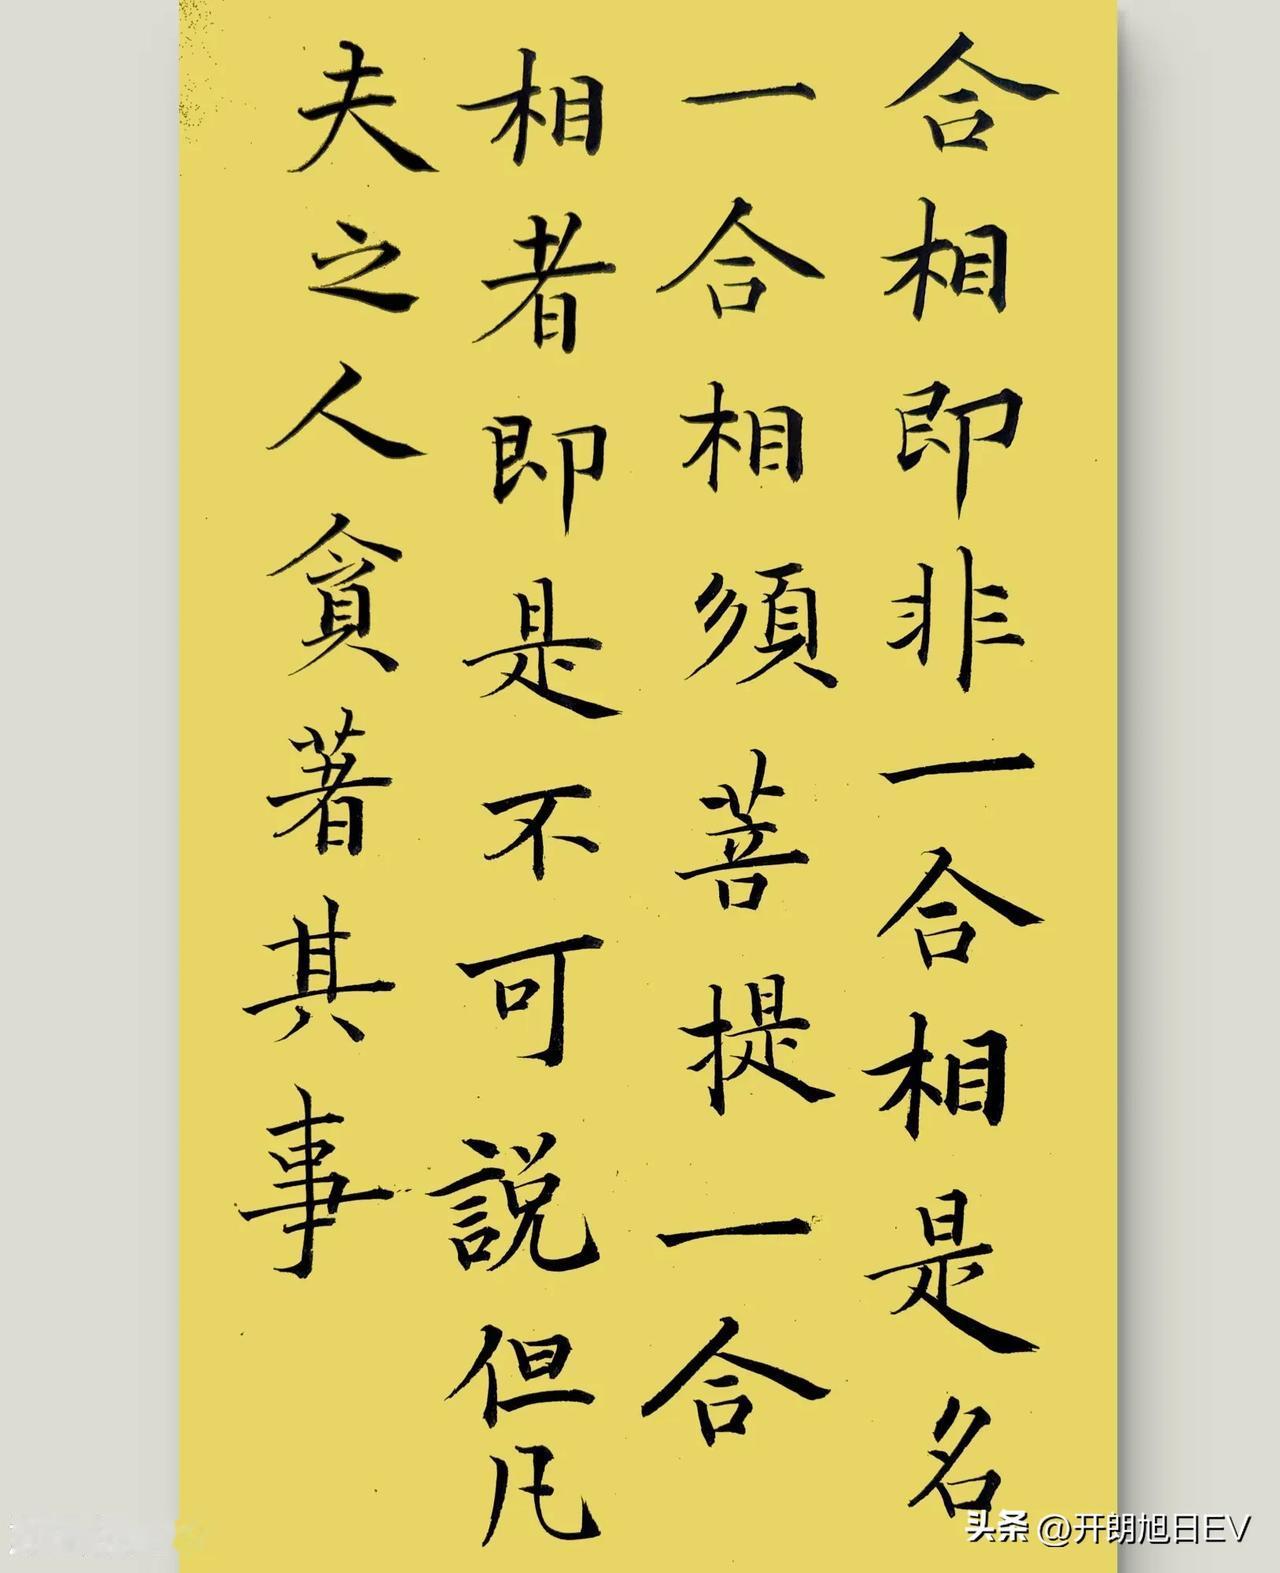 合相即非一合相是名
一合相須菩提一合
相者即是不可說但凡
夫之人貪著其事
头条 @开朗旭日EV